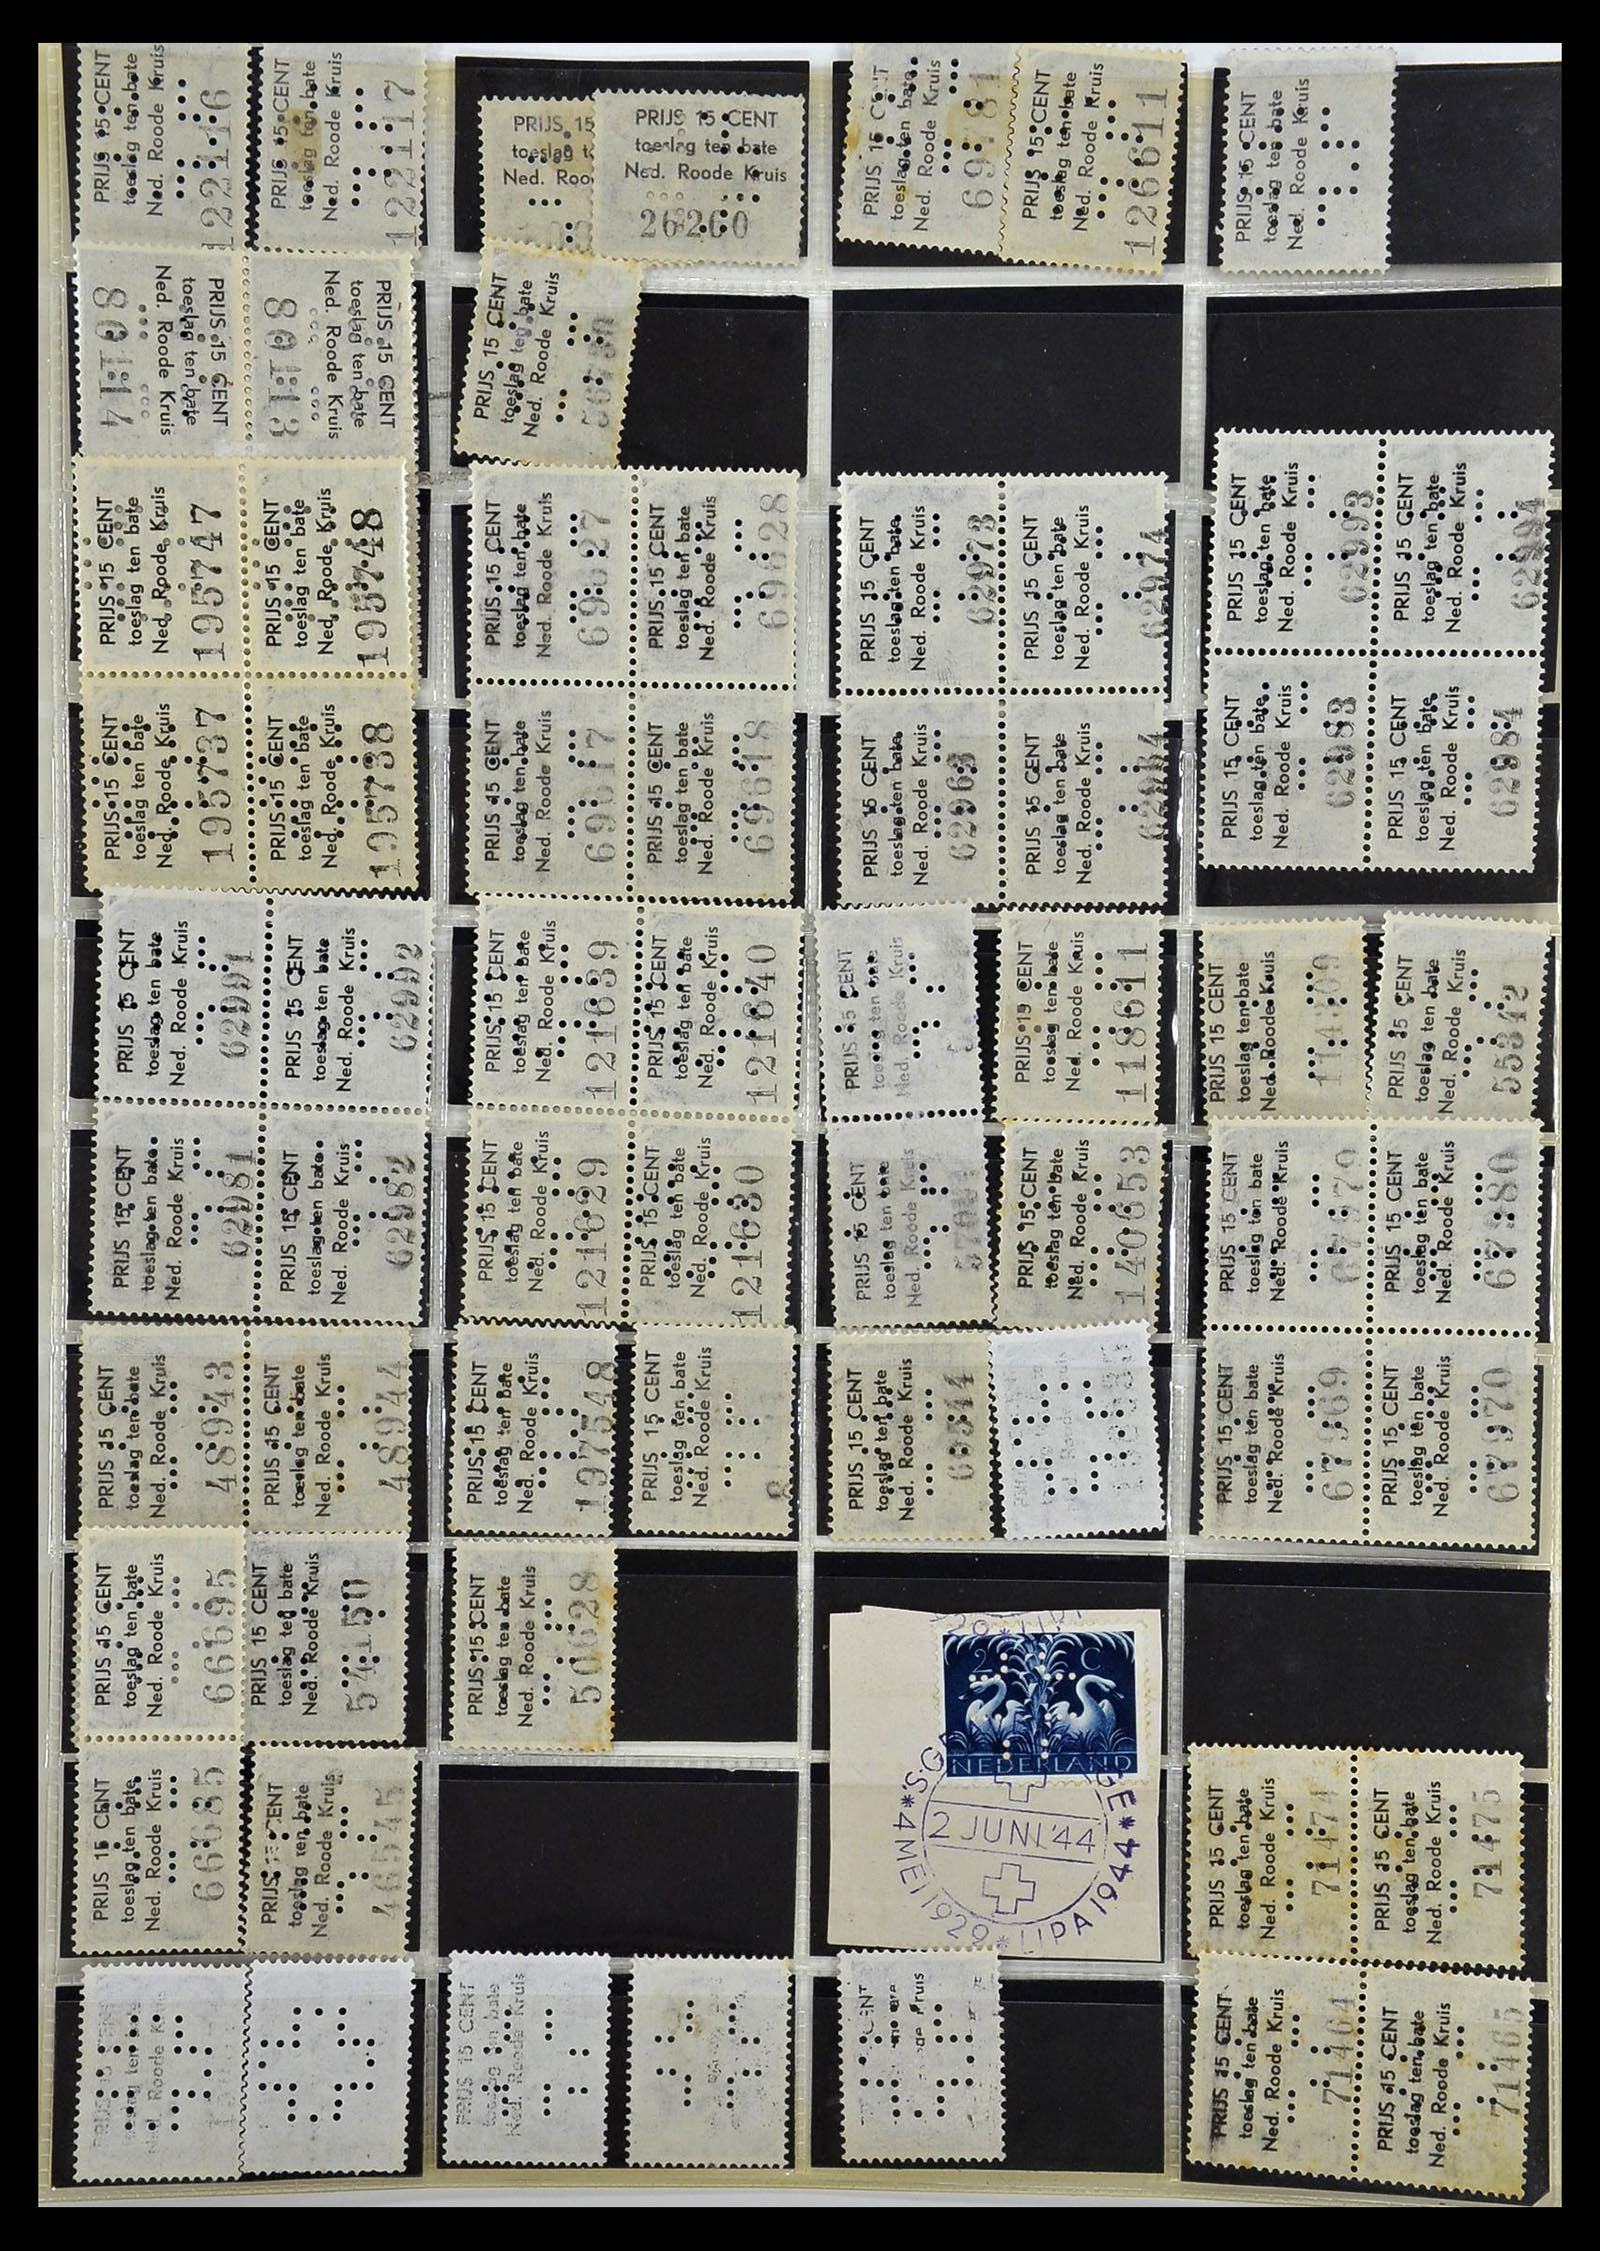 PRIJS 15 CENT
toeslag ten bate
Ned. Roode Kruis
122116
PRIJS 15 CENT
toeslag ten bate
Ned. Roode Kruis
122117
PRIJS 15
toeslag t
Ned. Roo
PRIJS 15 CENT
toeslag ten bate
Ned. Roode Kruis
26260
PRIJS 15 CENT
toeslag ten bate
Ned. Roode Kruis
69781
PRIJS 15 CENT
toeslag ten bate
Ned. Roode Kruis
126611
PRIJS 15 CENT
toeslag ten bate
Ned. Roode Kruis
PRIJS 15 CENT
toeslag ten bate
Ned. Roode Kruis
PRIJS 15 CENT
toeslag ten bate
Ned. Roode Kruis
PRIJS 15 CENT
toeslag ten bate
Ned. Roode Kruis
PRIJS 15 CENT
toeslag ten bate
Ned. Roode Kruis
195747
PRIJS 15 CENT
toeslag ten bate
Ned. Roode Kruis
195748
PRIJS 15 CENT
toeslag ten bate
Ned. Roode Kruis
69627
PRIJS 15 CENT
toeslag ten bate
Ned. Roode Kruis
69628
PRIJS 15 CENT
toeslag ten bate
Ned. Roode Kruis
62973
PRIJS 15 CENT
toeslag ten bate
Ned. Roode Kruis
62974
PRIJS 15 CENT
toeslag ten bate
Ned. Roode Kruis
62993
PRIJS 15 CENT
toeslag ten bate
Ned. Roode Kruis
62994
PRIJS 15 CENT
toeslag ten bate
Ned. Roode Kruis
195737
PRIJS 15 CENT
toeslag ten bate
Ned. Roode Kruis
195738
PRIJS 15 CENT
toeslag ten bate
Ned. Roode Kruis
69617
PRIJS 15 CENT
toeslag ten bate
Ned. Roode Kruis
69618
PRIJS 15 CENT
toeslag ten bate
Ned. Roode Kruis
62963
PRIJS 15 CENT
toeslag ten bate
Ned. Roode Kruis
62964
PRIJS 15 CENT
toeslag ten bate
Ned. Roode Kruis
62983
PRIJS 15 CENT
toeslag ten bate
Ned. Roode Kruis
62984
PRIJS 15 CENT
toeslag ten bate
Ned. Roode Kruis
62991
PRIJS 15 CENT
toeslag ten bate
Ned. Roode Kruis
62992
PRIJS 15 CENT
toeslag ten bate
Ned. Roode Kruis
121639
PRIJS 15 CENT
toeslag ten bate
Ned. Roode Kruis
121640
PRIJS 15 CENT
toeslag ten bate
Ned. Roode Kruis
PRIJS 15 CENT
toeslag ten bate
Ned. Roode Kruis
118611
PRIJS 15 CENT
toeslag ten bate
Ned. Roode Kruis
PRIJS 15 CENT
toeslag ten bate
Ned. Roode Kruis
55342
PRIJS 15 CENT
toeslag ten bate
Ned. Roode Kruis
62981
PRIJS 15 CENT
toeslag ten bate
Ned. Roode Kruis
62982
PRIJS 15 CENT
toeslag ten bate
Ned. Roode Kruis
121629
PRIJS 15 CENT
toeslag ten bate
Ned. Roode Kruis
121630
PRIJS 15 CENT
toeslag ten bate
Ned. Roode Kruis
PRIJS 15 CENT
toeslag ten bate
Ned. Roode Kruis
140653
PRIJS 15 CENT
toeslag ten bate
Ned. Roode Kruis
67979
PRIJS 15 CENT
toeslag ten bate
Ned. Roode Kruis
67980
PRIJS 15 CENT
toeslag ten bate
Ned. Roode Kruis
48943
PRIJS 15 CENT
toeslag ten bate
Ned. Roode Kruis
48944
PRIJS 15 CENT
toeslag ten bate
Ned. Roode Kruis
197548
PRIJS 15 CENT
toeslag ten bate
Ned. Roode Kruis
PRIJS 15 CENT
toeslag ten bate
Ned. Roode Kruis
PRIJS 15 CENT
toeslag ten bate
Ned. Roode Kruis
67969
PRIJS 15 CENT
toeslag ten bate
Ned. Roode Kruis
67970
PRIJS 15 CENT
toeslag ten bate
Ned. Roode Kruis
66695
PRIJS 15 CENT
toeslag ten bate
Ned. Roode Kruis
54150
PRIJS 15 CENT
toeslag ten bate
Ned. Roode Kruis
50628
2 C
NEDERLAND
2 JUNI '44
4 MEI 1920 * LIPA 1944 *
PRIJS 15 CENT
toeslag ten bate
Ned. Roode Kruis
66685
PRIJS 15 CENT
toeslag ten bate
Ned. Roode Kruis
46545
PRIJS 15 CENT
toeslag ten bate
Ned. Roode Kruis
71474
PRIJS 15 CENT
toeslag ten bate
Ned. Roode Kruis
71475
PRIJS 15 CENT
toeslag ten bate
Ned. Roode Kruis
PRIJS 15 CENT
toeslag ten bate
Ned. Roode Kruis
71464
PRIJS 15 CENT
toeslag ten bate
Ned. Roode Kruis
71465